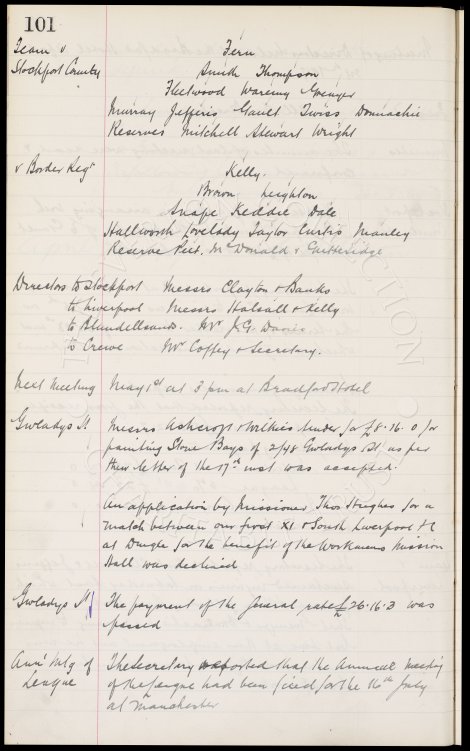 101
Team v Fern
Stockport County Smith Thompson
Fleetwood Wareing Grenyer
Murray Jefferis Gault Twiss Donnachie
Reserves Mitchell Stewart Wright
v Border Regt Kelly.
Brown Leighton
Snape Keddie Dale
Hallworth Lovelady Taylor Curtis Manley
Reserve Peet. McDonald & Gutteridge
Directors to Stockport Messrs Clayton & Banks
to Liverpool Messrs Halsall & Kelly
to Blundellsands. Mr J.G. Davies
to Crewe Mr Coffey & Secretary.
Next Meeting May 1st at 3 pm at Bradford Hotel
Gwladys St Messrs Ashcroft & Wilkies tender for £8.16.0 for
painting Stone Bays of 2/48 Gwladys St, as per
their letter of the 17th inst was accepted.
An application by Missioner Thos Hughes for a
match between our first XI & South Liverpool FC
at Dingle for the benefit of the Workmens Mission
Hall was declined
Gwladys St The payment of the general rate £26.16.3 was
passed
Ann' Mtg of The Secretary reported that the Annual Meeting
League of the League had been fixed for the 16th July
at Manchester